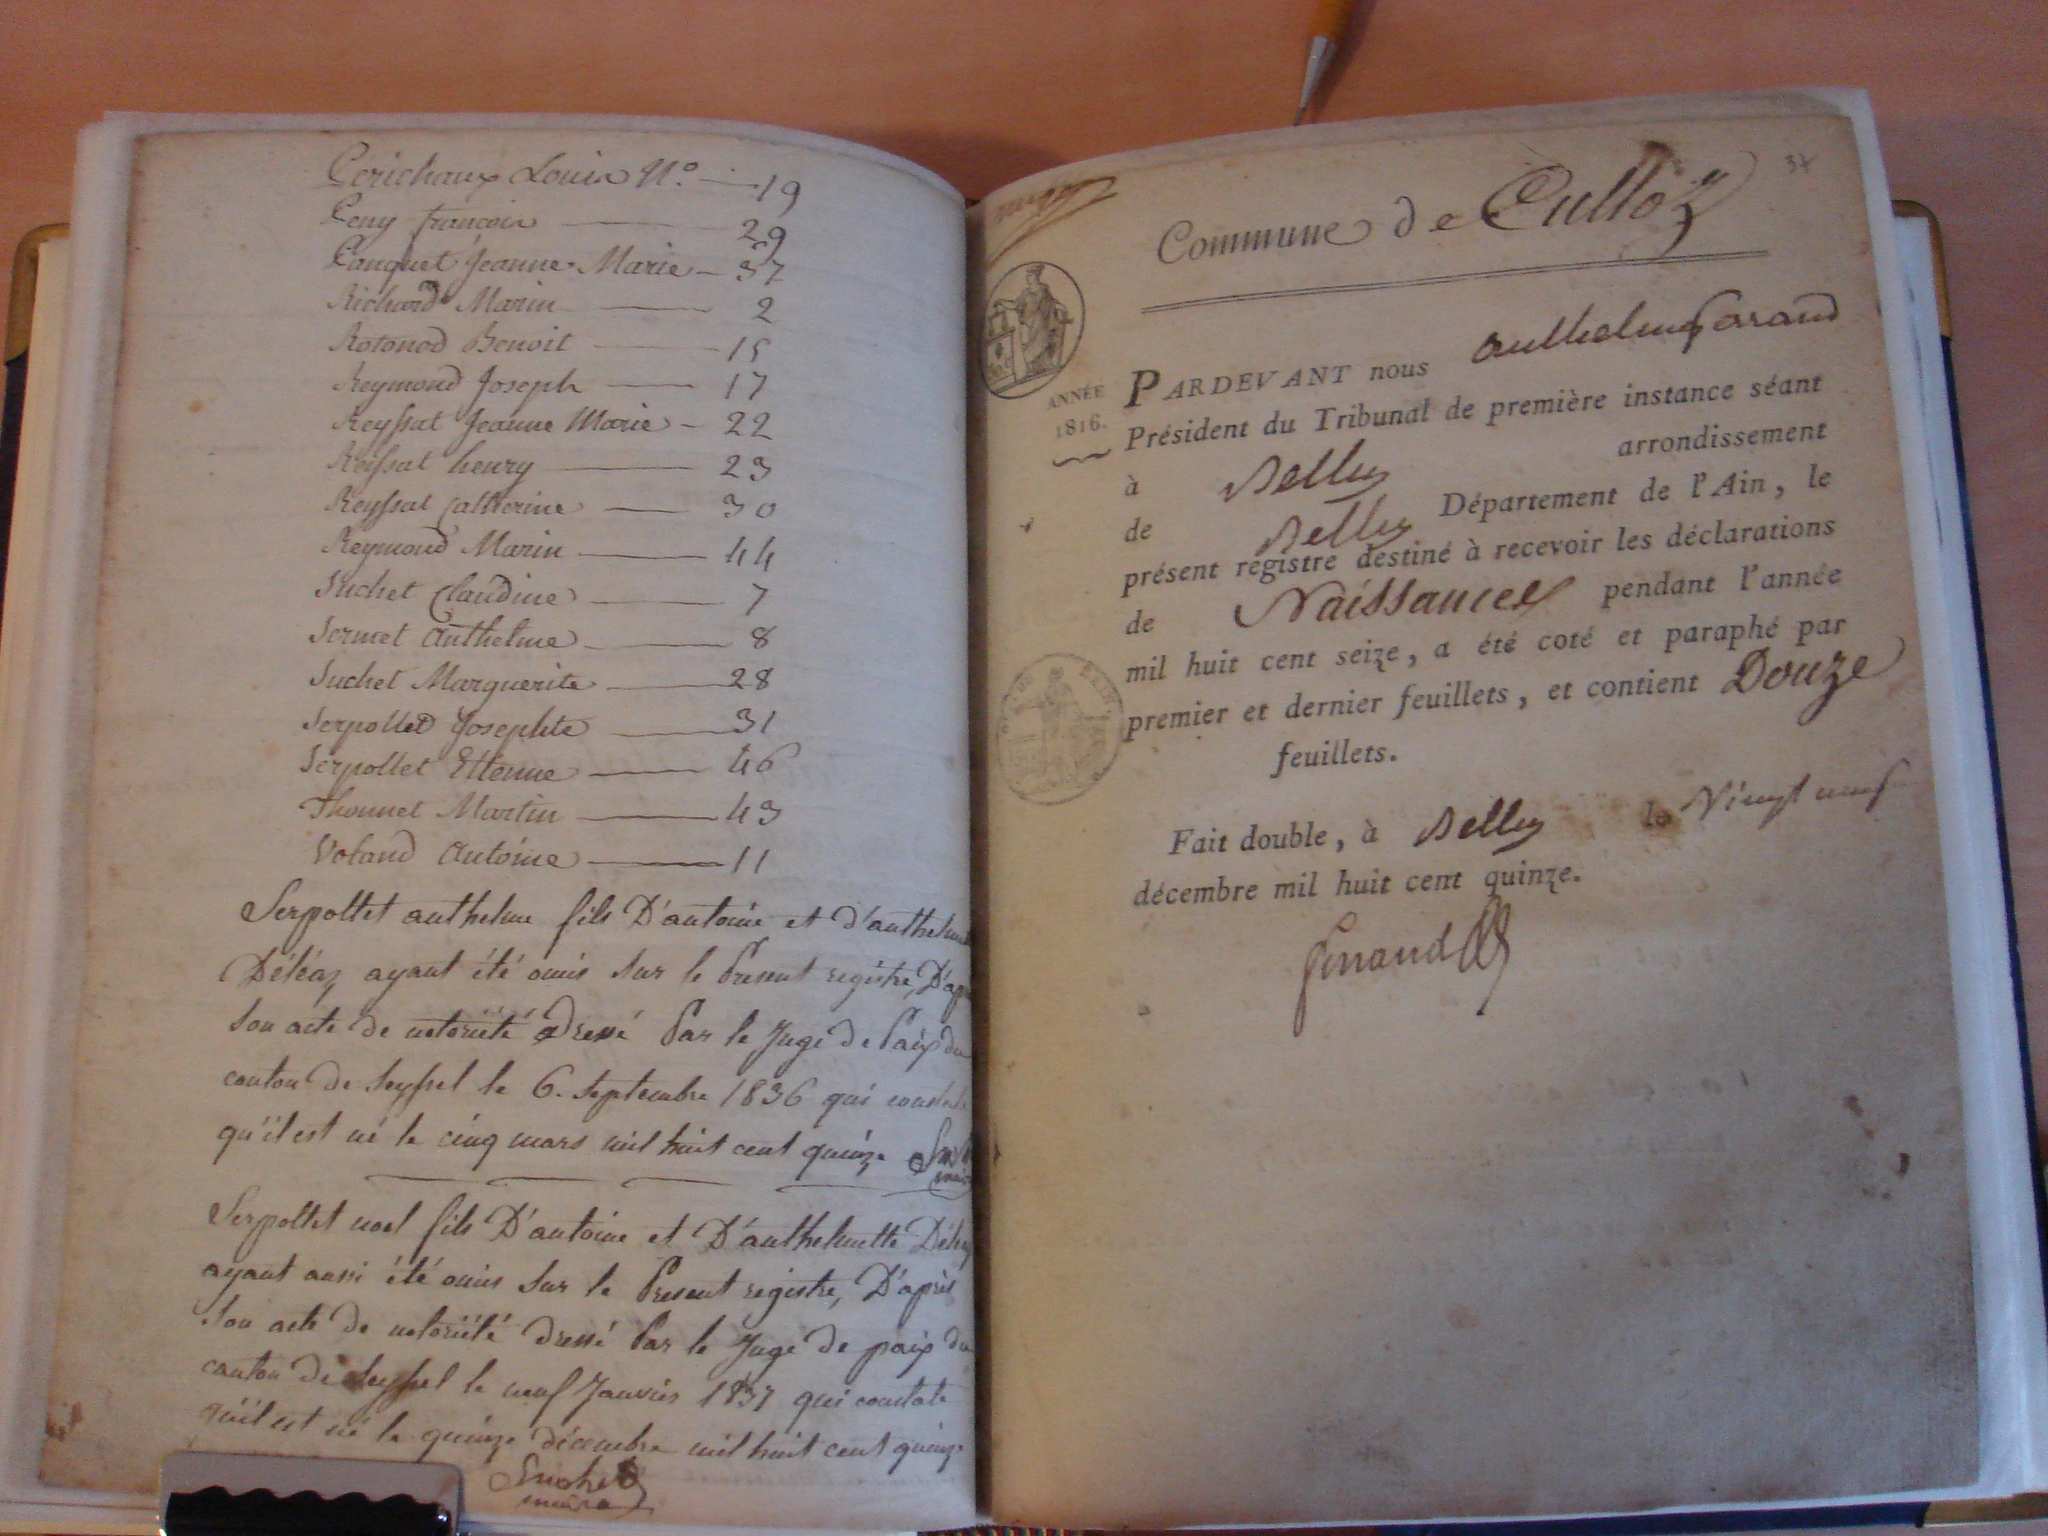 Perichaux Louis N.º — 19
Peny françois — 29
Panquet Jeanne Marie — 37
Richard Marin — 2
Rotonod Benoit — 15
Reymond Joseph — 17
Reyssat Jeanne Marie — 22
Reyssat henry — 23
Reyssat Catherine — 30
Reymond Marin — 44
Suchet Claudine — 7
Sermet Anthelme — 8
Suchet Marguerite — 28
Serpollet Josephte — 31
Serpollet Etienne — 46
Thonnet Martin — 43
Voland Antoine — 11
Serpollet anthelme fils D'antoine et d'anthelmette
Déléaz ayant été omis sur le Présent registre, D'après
son acte de notoriété dressé Par le Juge de Paix du
canton de Seyssel le 6. septembre 1836 qui constate
qu'il est né le cinq mars mil huit cent quinze
Serpollet noel fils D'antoine et D'anthelmette Déléaz
ayant aussi été omis sur le Présent registre, D'après
son acte de notoriété dressé Par le Juge de paix du
canton de Seyssel le neuf Janvier 1837 qui constate
qu'il est né le quinze décembre mil huit cent quinze
Suchet
maire
37
Commune de Culloz
ANNÉE
1816.
PARDEVANT nous Anthelme Garand
Président du Tribunal de première instance séant
à Belley arrondissement
de Belley Département de l'Ain, le
présent registre destiné à recevoir les déclarations
de Naissances pendant l'année
mil huit cent seize, a été coté et paraphé par
premier et dernier feuillets, et contient Douze
feuillets.
Fait double, à Belley le Vingt neuf
décembre mil huit cent quinze.